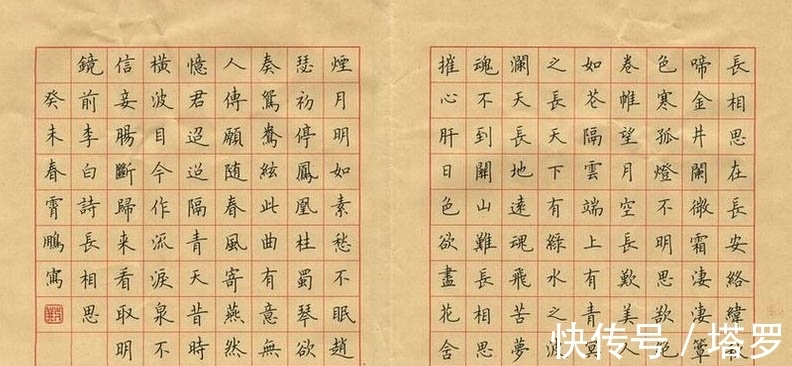 長相思在長安絡緯秋
啼金井闌微霜淒淒簟
色寒孤燈不明思欲絕
卷帷望月空長歎美人
如花隔雲端上有青冥
之長天下有綠水之波
瀾天長地遠魂飛苦夢
魂不到關山難長相思
摧心肝日色欲盡花含
煙月明如素愁不眠趙
瑟初停鳳凰柱蜀琴欲
奏鴛鴦絃此曲有意無
人傳願随春風寄燕然
憶君迢迢隔青天昔時
橫波目今作流淚泉不
信妾腸斷歸來看取明
鏡前李白詩長相思
癸未春霄鵬寫
快传号 / 塔罗